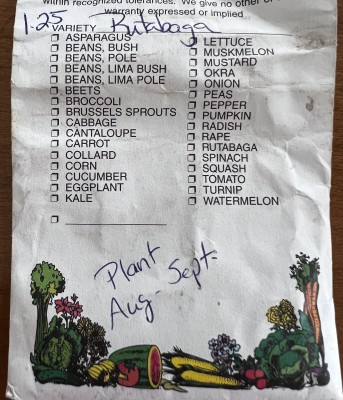 within recognized tolerances. We give no other or
warranty expressed or implied
1.25 VARIETY Rutabaga
☐ ASPARAGUS
☐ BEANS, BUSH
☐ BEANS, POLE
☐ BEANS, LIMA BUSH
☐ BEANS, LIMA POLE
☐ BEETS
☐ BROCCOLI
☐ BRUSSELS SPROUTS
☐ CABBAGE
☐ CANTALOUPE
☐ CARROT
☐ COLLARD
☐ CORN
☐ CUCUMBER
☐ EGGPLANT
☐ KALE
☐ LETTUCE
☐ MUSKMELON
☐ MUSTARD
☐ OKRA
☐ ONION
☐ PEAS
☐ PEPPER
☐ PUMPKIN
☐ RADISH
☐ RAPE
☐ RUTABAGA
☐ SPINACH
☐ SQUASH
☐ TOMATO
☐ TURNIP
☐ WATERMELON
Plant
Aug - Sept.